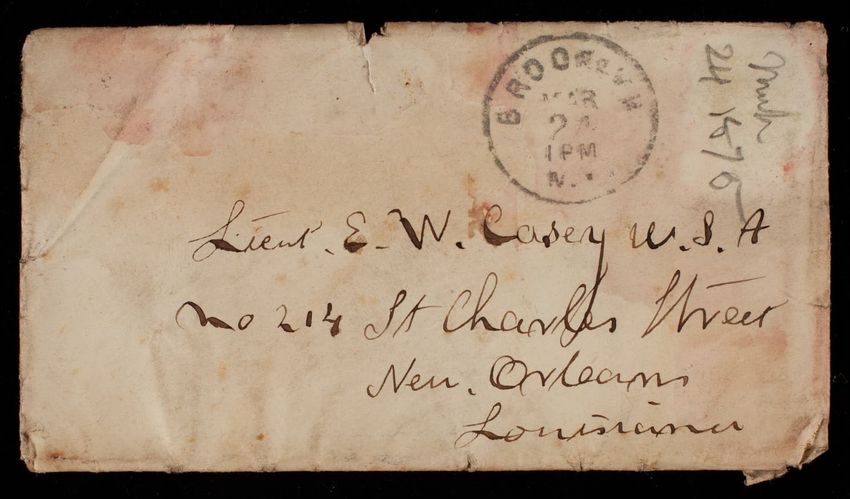 BROOKLYN
MAR
24
1 PM
N.Y.
March
24 1875
Lieut. E. W. Casey U.S.A
No 214 St Charles Street
New. Orleans
Louisiana